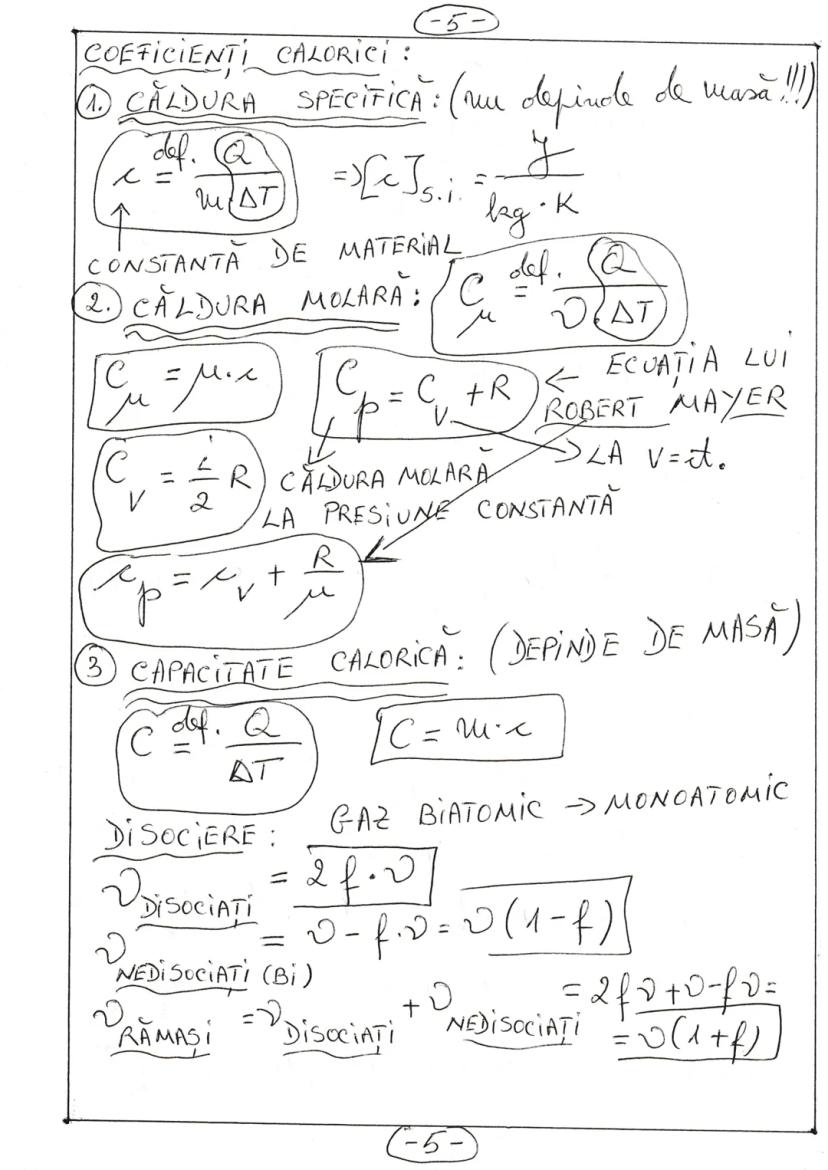 -5-
COEFICIENȚI CALORICI:
1. CĂLDURA SPECIFICĂ: (nu depinde de masă!!!)
c def.= Q/(m ΔT) => [c]S.i. = J/(kg·K)
CONSTANTĂ DE MATERIAL
2. CĂLDURA MOLARĂ: Cμ def.= Q/(ν·ΔT)
Cμ = μ·c Cp = Cv + R ← ECUAȚIA LUI
ROBERT MAYER
Cv = i/2 R CĂLDURA MOLARĂ LA V=ct.
LA PRESIUNE CONSTANTĂ
cp = cv + R/μ
3 CAPACITATE CALORICĂ: (DEPINDE DE MASĂ)
C def.= Q/ΔT C = m·c
DISOCIERE: GAZ BIATOMIC → MONOATOMIC
ν DISOCIAȚI = 2f·ν
ν NEDISOCIAȚI (Bi) = ν - f·ν = ν(1-f)
ν RĂMAȘI = ν DISOCIAȚI + ν NEDISOCIAȚI = 2fν+ν-fν=
= ν(1+f)
-5-